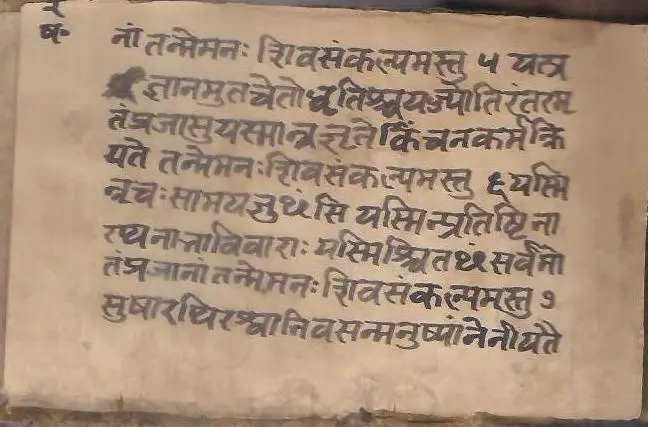 २
ष॰
नां तन्मेमनः शिवसंकल्पमस्तु ५ यत्प्र
ज्ञानमुतचेतोधृतिश्चयज्ज्योतिरंतरम
तंप्रजासु यस्मान्नऋतेकिंचनकर्मक्रि
यते तन्मेमनःशिवसंकल्पमस्तु ६ यस्मि
न्नृचःसामयजुꣳसि यस्मिन्प्रतिष्टिना
रथनाभाविवाराः यस्मिश्चितꣳसर्वमो
तंप्रजानां तन्मेमनः शिवसंकल्पमस्तु ७
सुषारथिरश्वानिवसन्मनुष्यांनेनीयतै